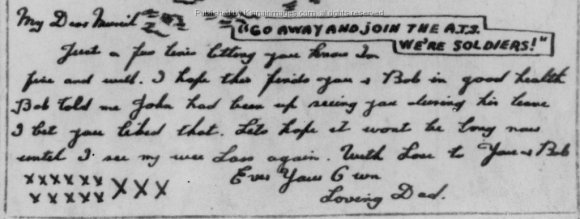 Published by Kamat Images.com, all rights reserved
My Dear Muriel
"GO AWAY AND JOIN THE A.T.S.
WE'RE SOLDIERS!"
Just a few lines letting you know Im
fine and well. I hope this finds you & Bob in good health
Bob told me John had been up seeing you during his leave
I bet you liked that. Lets hope it wont be long now
until I see my wee Lass again. With Love to You & Bob
Ever Your Own
Loving Dad.
xxxxxx XXX
xxxxxx